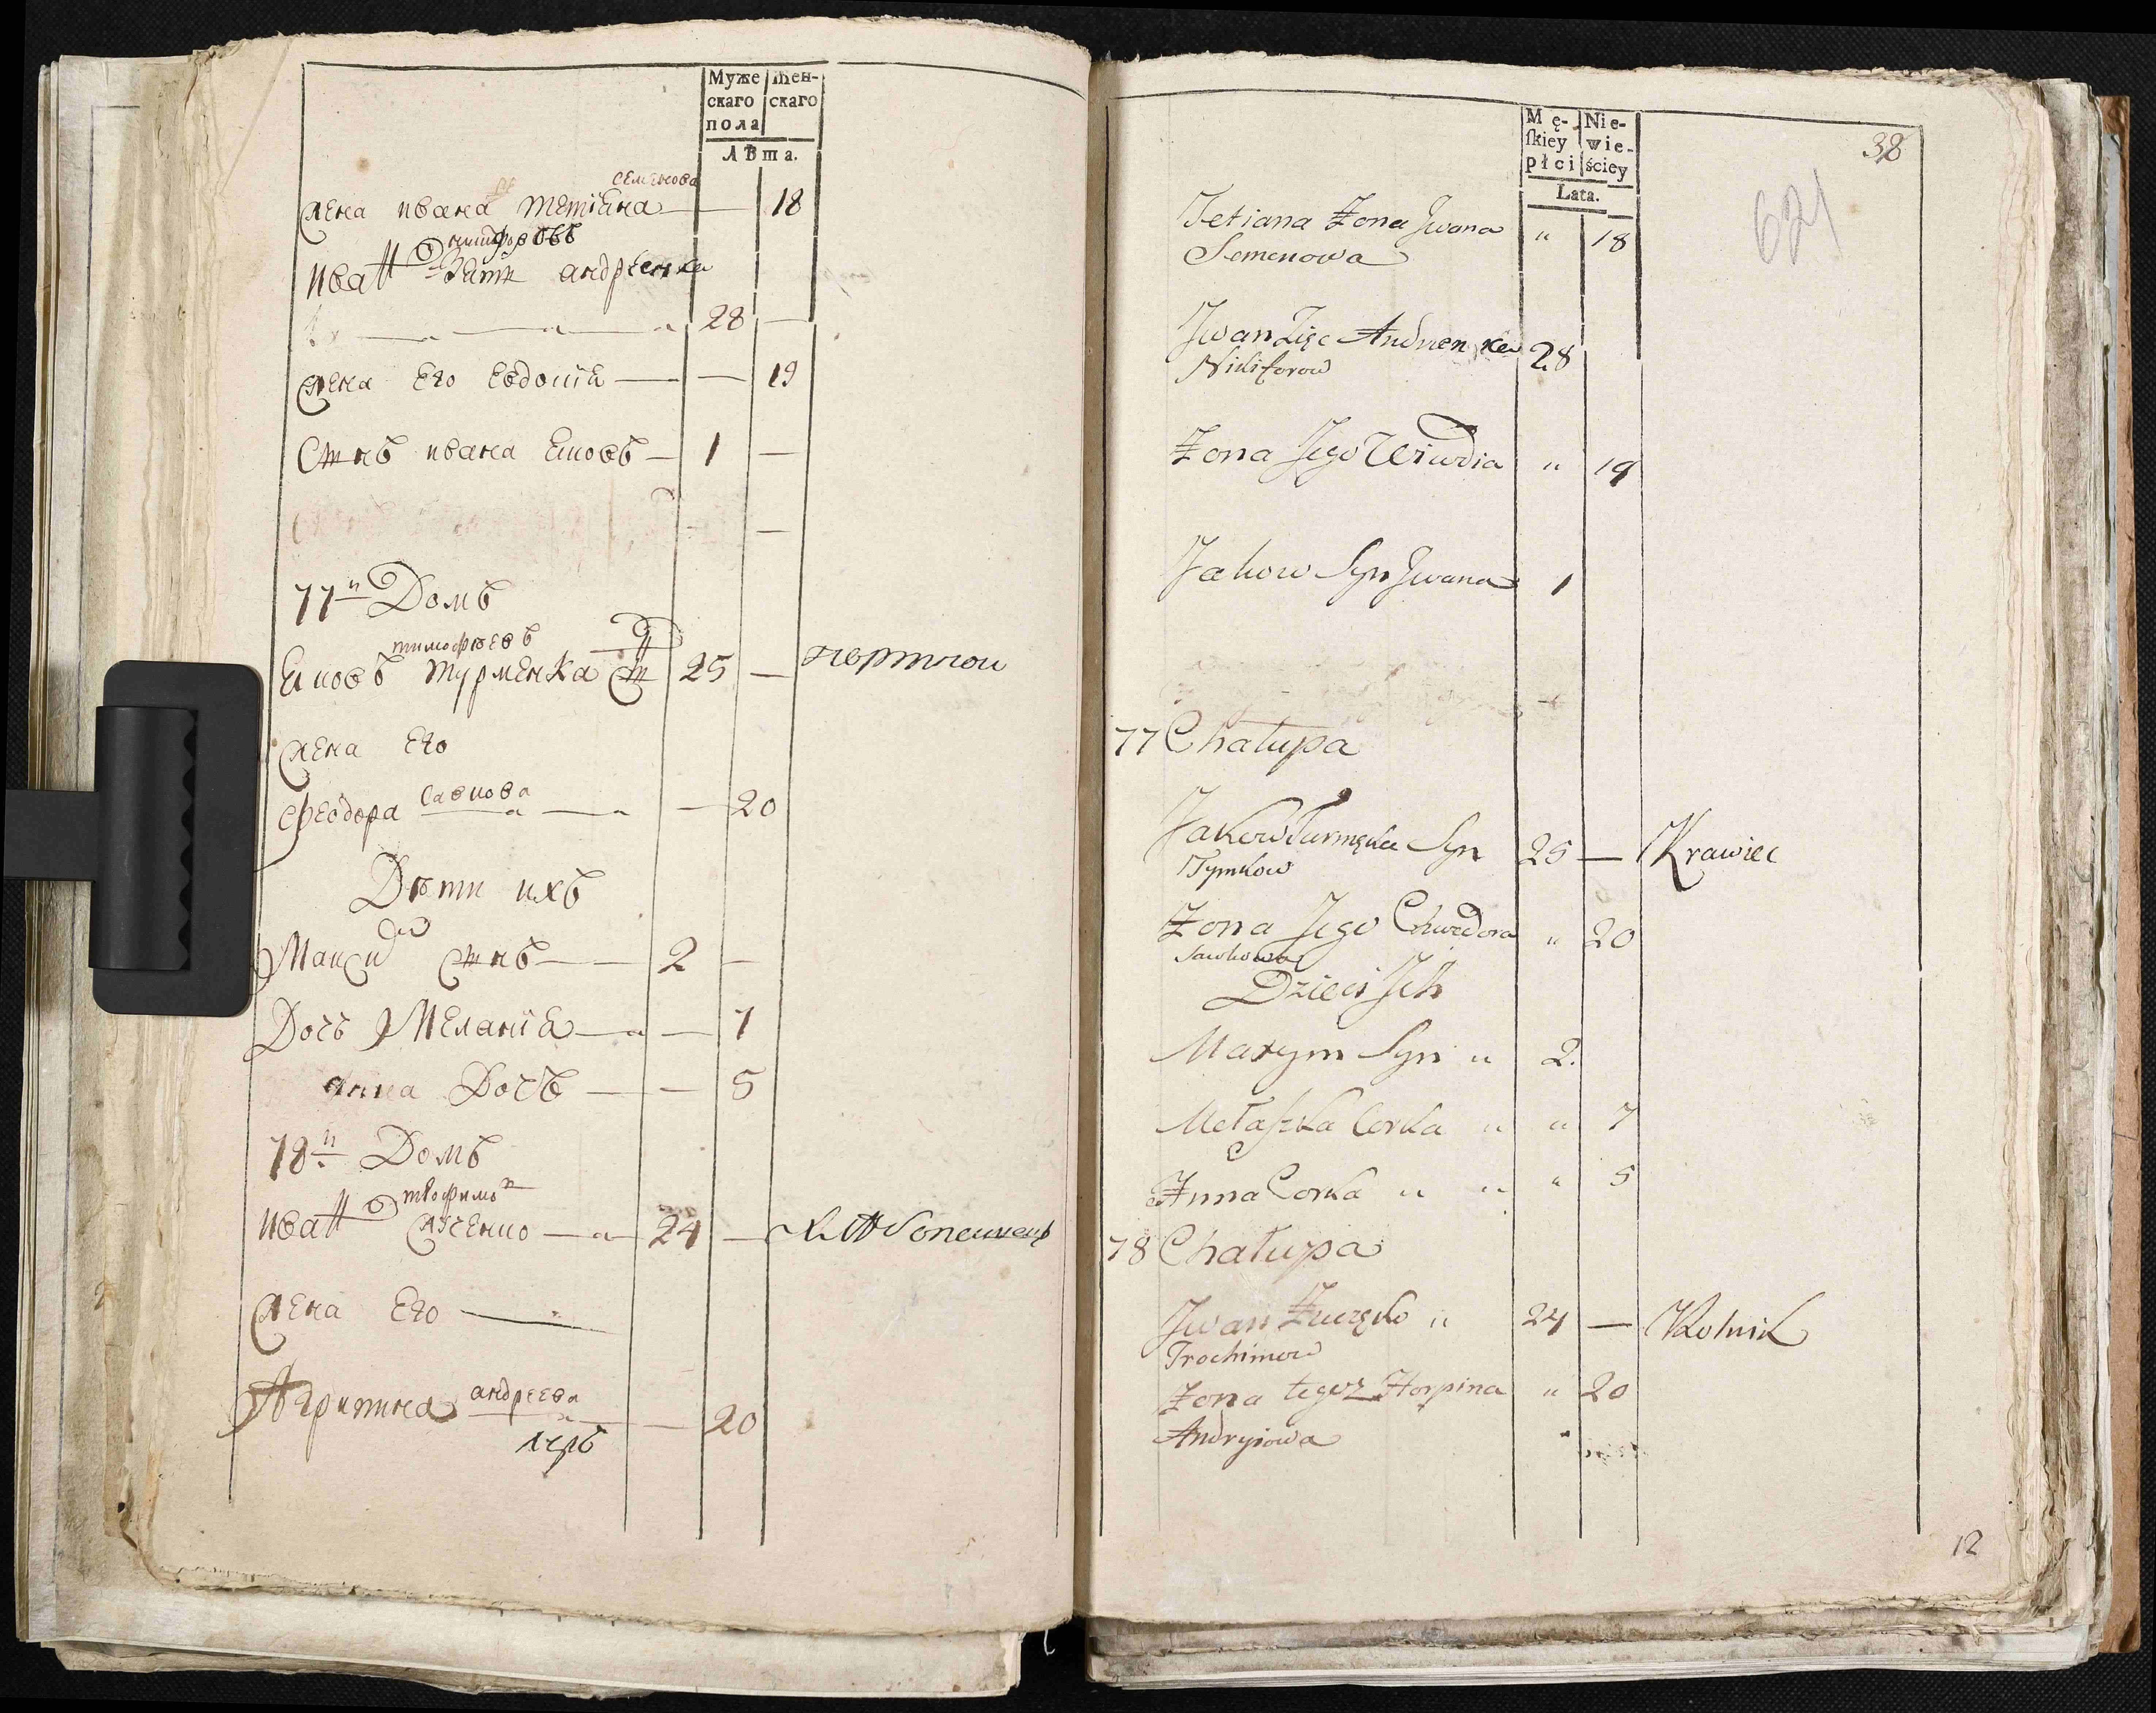 Муже Жен-
скаго скаго
пола
Лѣта.
семенова
жена ивана тетіана — — 18
никифоровъ
иванъ зять андреенка
28 —
жена его евдокія — — 19
Сынъ ивана яковъ — 1 —
—
77й Домъ
тимофѣевъ
яковъ турменка 25 — портной
жена его
феодора савкова — 20
Дѣти ихъ
Максим сынъ — 2 —
Дочь Меланія — — 7
анна Дочь — — 5
78й Домъ
трофимов
иван зученко — 24 —
жена его —
Агрипина андреева — 20
Mę- Nie-
ſkiey wie-
płci ściey
Lata.
38
621
Tetiana Żona Jwana " 18
Semenowa
Jwan Zięc Andrenka 28
Nikiforow
Żona Jego Wiwdia " 19
Jakow Syn Jwana 1
77 Chałupa
Jakow Turmęka Syn 25 — Krawiec
Tymkow
Żona Jego Chwedora " 20
Sawkowa
Dzieci Jch
Maxym Syn " 2.
Mełaszka Corka " " 7
Anna Corka " " " 5
78 Chałupa
Jwan Zuczęko " 24 — Rolnik
Trochimow
Żona tegoż Horpina " 20
Andryiowa
12